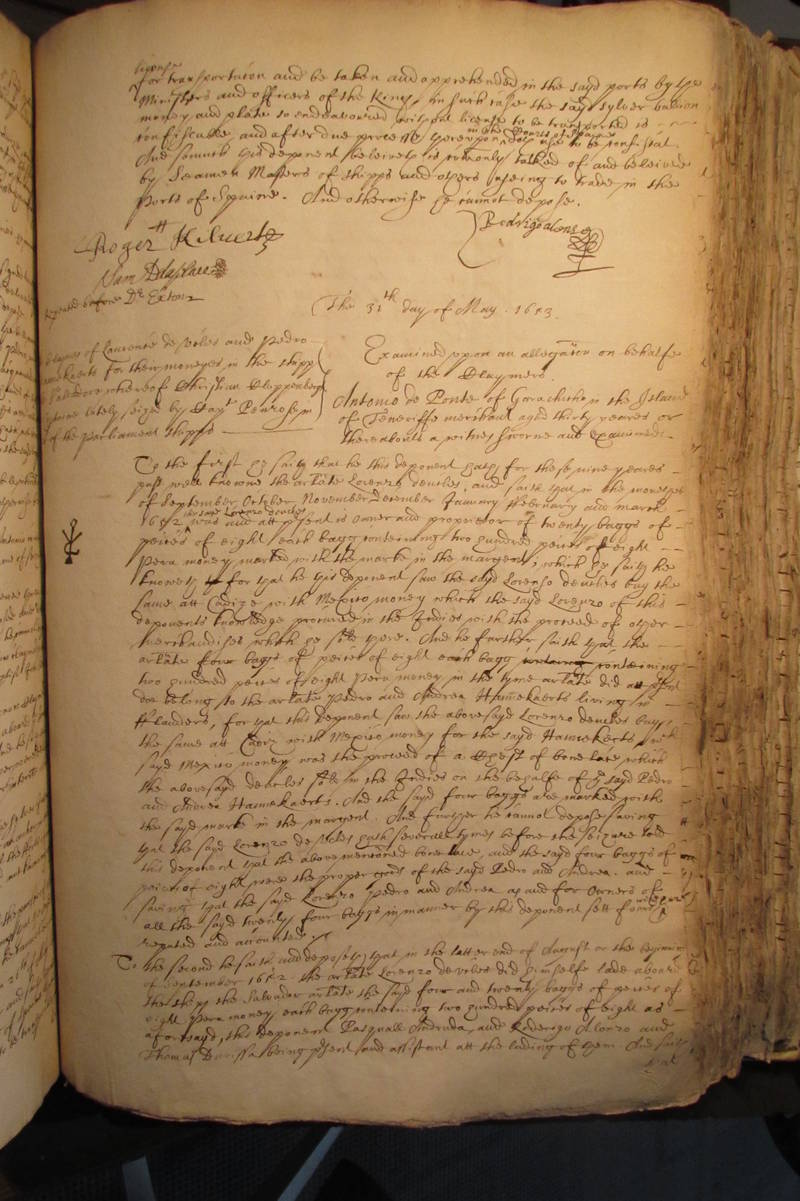 upon
for transportation and be taken and apprehended in the sayd ports by the
Ministers and officers of the King, in such case the sayd sylver bullion
money and plate so endeavoured without license to be transported is
confiscable, and after due processe thereupon in the Courts of Spaine doth use to be confiscat.
And somuch this deponent beleiveth is comonly talked of and beleived
by Seamen Masters of shipps and others useing to trade in the
Ports of Spaine. And otherwise he cannot depose.
Rodrigo alonso
Roger Kilvert
repeated before Dr. Exton
The 31th day of May. 1653.
Claymes of Laurente de Veles and Pedro
for their moneyes in the shipp
Salvadore whereof Christian Cloppenberg
lately seized by Capt. Penrose in
of the Parliament shipps
Examined upon an allegation on behalfe
of the Claymers.
Antonio de Ponte of Garachicha in the Island
of Teneriffe merchant aged thirty yeares or
thereabouts a witnes sworne and examined.
To the first hee saith that he this deponent hath for these nine yeares
past well knowne the arlate Lorenzo develes, and saith that in the monethes
of September October November December January ffebruary and march
1652 the sayd Lorenzo develes was and att present is owner and proprietor of twenty baggs of
peices of eight each bagg conteining two hundred peices of eight
Peru money marked with the marke in the margent, which hee saith he
knoweth for that he this deponent saw the sayd Lorenzo develes buy the
same att Cadize with Mexico money which the sayd Lorenzo of this
deponents knowledge procured in the Indies with the proceed of other
merchandises which he sold there. And he further saith that the
arlate four baggs of peices of eight each bagg conteining
two hundred peices of eight Peru money in the tyme arlate did att present
doe belong to the arlate Pedro and Andrea Hamekaerts living in
fflanders, for that this deponent saw the abovesayd Lorenzo develes buy
the same att Cadiz with Mexico money for the sayd Hamekaerts which
sayd Mexico money was the proceed of a Chest of bone lace which
the abovesayd develes sold in the Indies on the behalfe of the sayd Pedro
and Andrea Hamekaerts. And the sayd four baggs are marked with
the sayd marke in the margent. And further he cannot depose saving
that the sayd Lorenzo de Veles hath severall tymes before the seizure told
this deponent that the abovementioned bone lace, and the sayd four baggs of
peices of eight were the proper goods of the sayd Pedro and Andrea. and
saving that the sayd Lorenzo Pedro and Andrea as and for owners of
all the sayd twenty four baggs in manner by this deponent sett foorth were
reputed and accounted.
To the second he saith and deposeth, that in the latter end of August or the beginning
of September 1652 the arlate Lorenzo de veles did himselfe lade aboard
the shipp the Salvador arlate the sayd four and twenty baggs of peices of
eight Peru money each bagg conteining two hundred peices of eight as
aforesayd, this deponent Pasquall Andruda, and Roderigo Alonzo and
Thomas being present and assistant att the lading of them. And saith
that